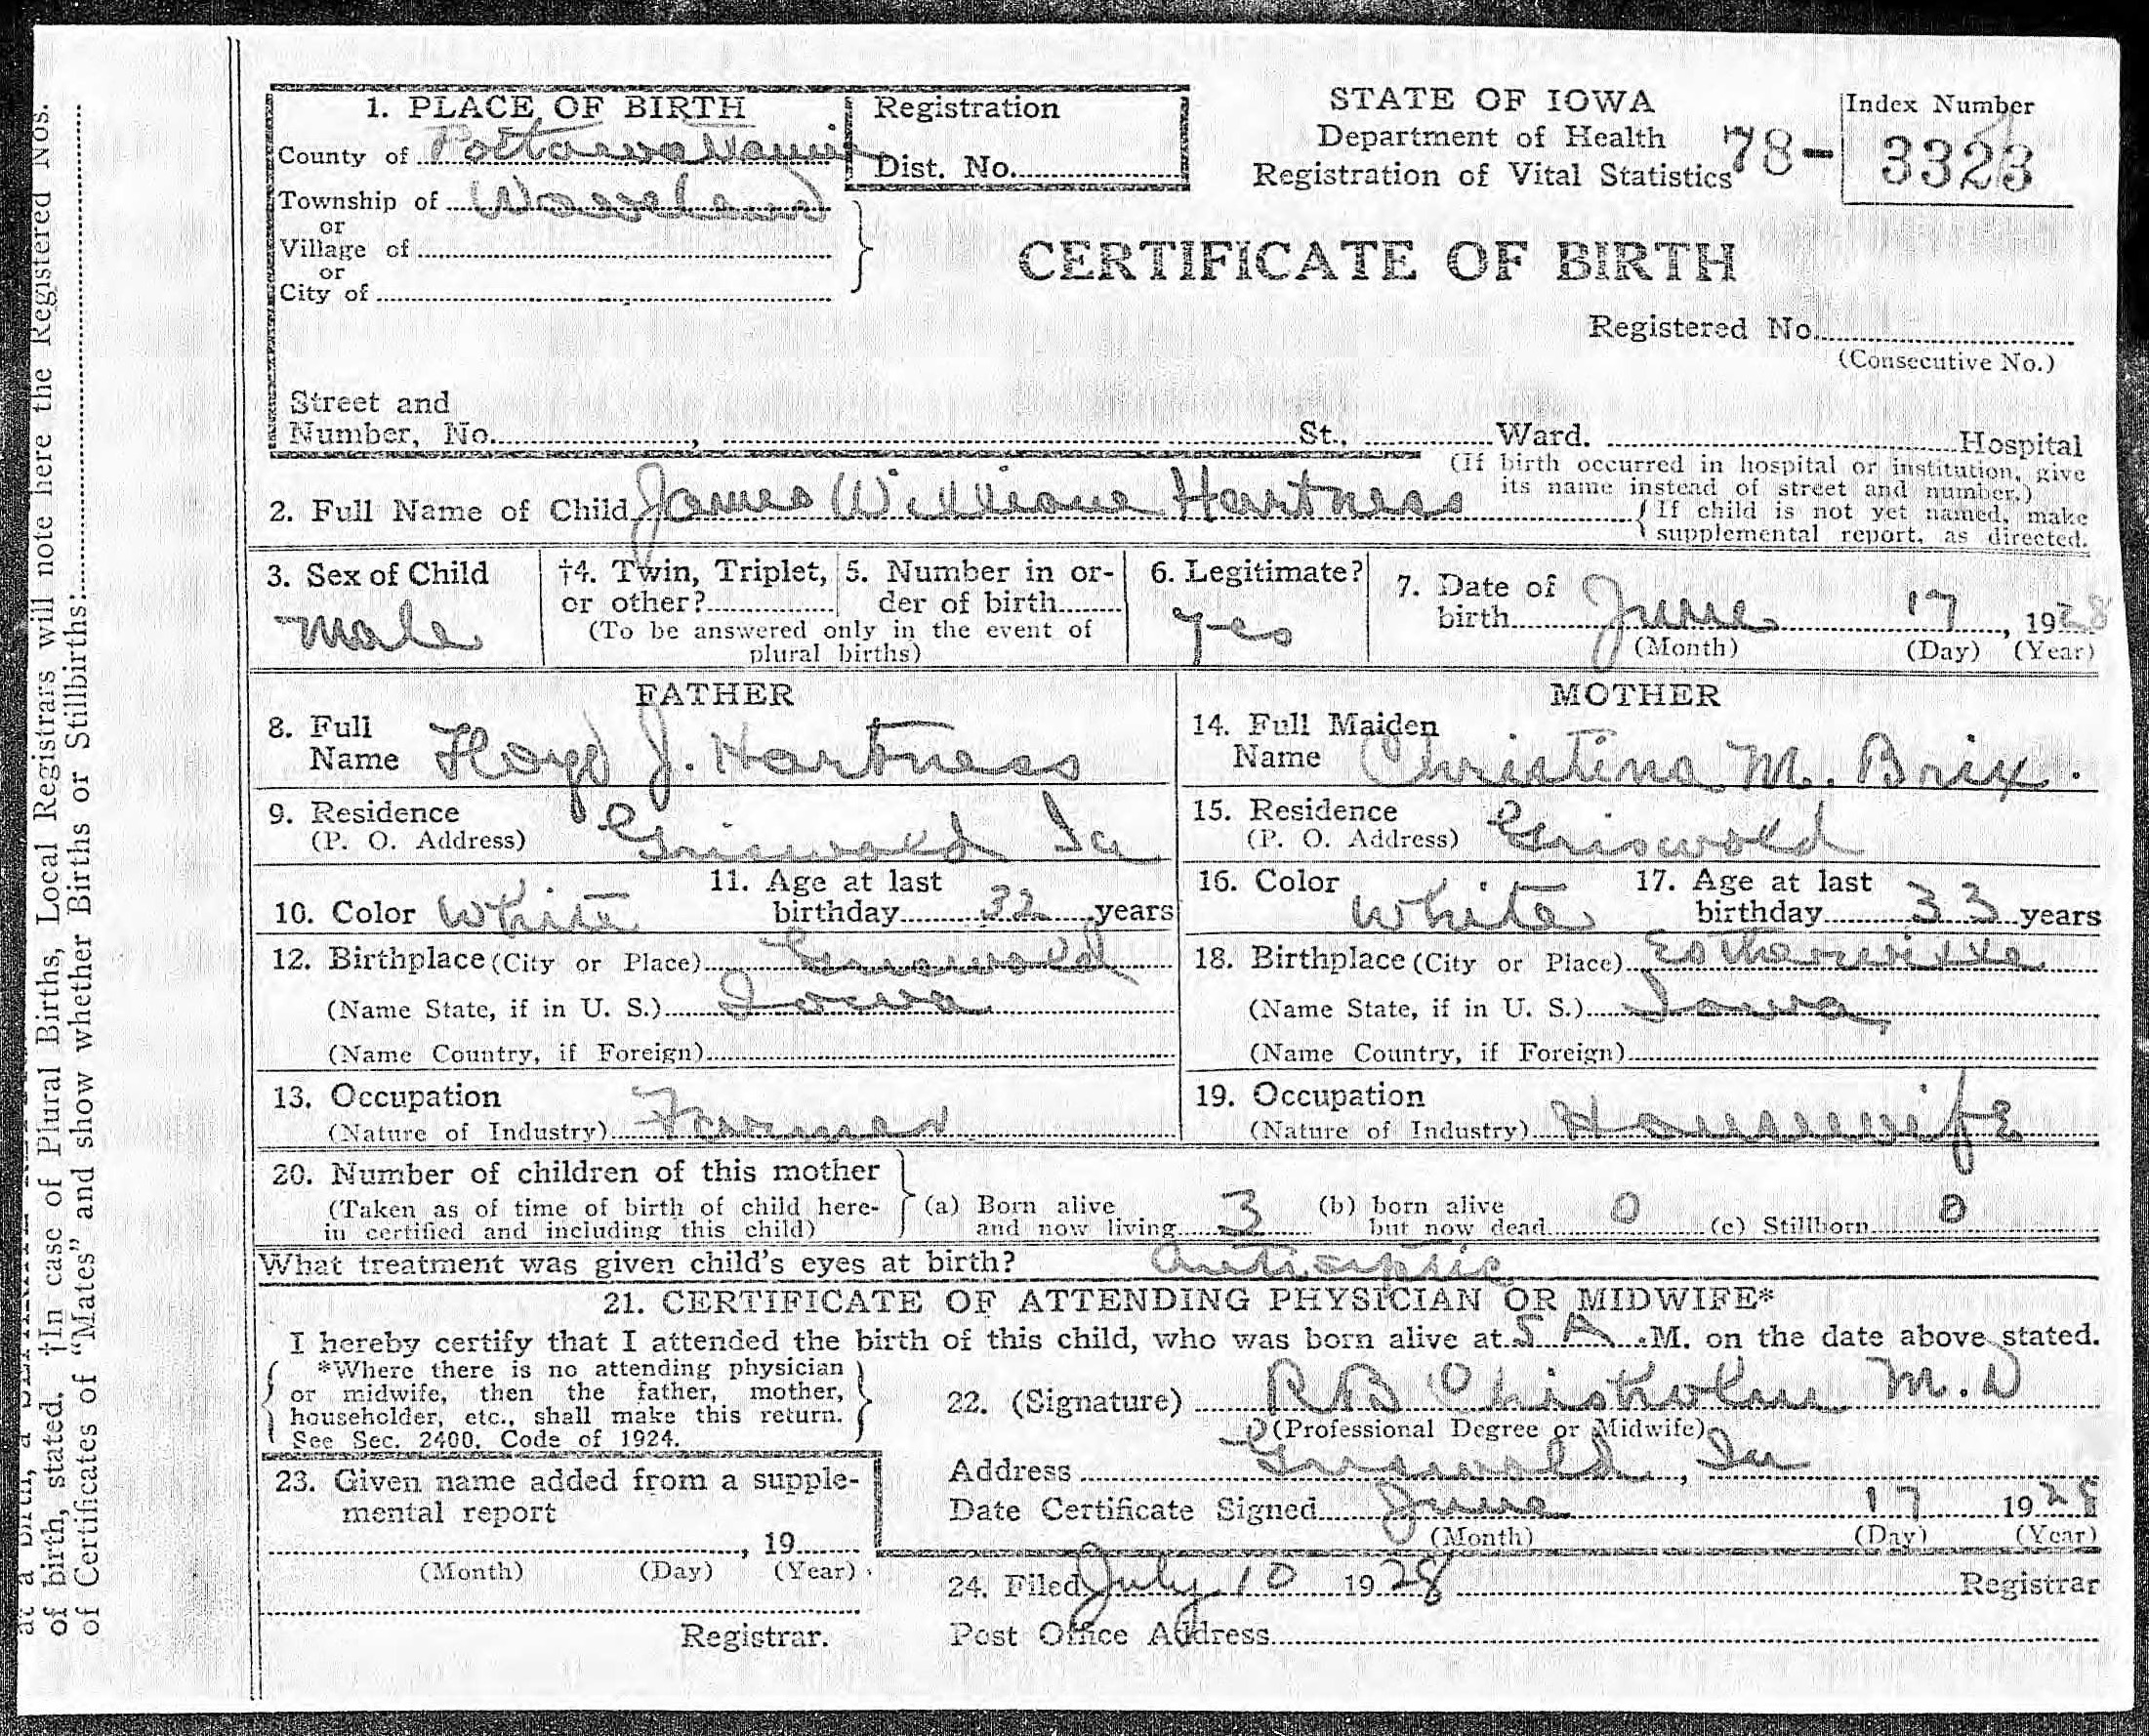 1. PLACE OF BIRTH
County of Pottawattamie
Township of Waveland
or
Village of
or
City of
Registration
Dist. No.
STATE OF IOWA
Department of Health
Registration of Vital Statistics
78-
Index Number
3323
CERTIFICATE OF BIRTH
Registered No.
(Consecutive No.)
Street and
Number, No. , St., Ward. Hospital
(If birth occurred in hospital or institution, give
its name instead of street and number.)
2. Full Name of Child James William Hartness
{ If child is not yet named, make
supplemental report, as directed.
3. Sex of Child
male
†4. Twin, Triplet,
or other?
5. Number in or-
der of birth
(To be answered only in the event of
plural births)
6. Legitimate?
yes
7. Date of
birth June 17, 1928
(Month) (Day) (Year)
FATHER
8. Full
Name Floyd J. Hartness
9. Residence
(P. O. Address) Griswold Ia
10. Color White
11. Age at last
birthday 32 years
12. Birthplace (City or Place) Griswold
(Name State, if in U. S.) Iowa
(Name Country, if Foreign)
13. Occupation
(Nature of Industry) Farmer
MOTHER
14. Full Maiden
Name Christina M. Brix.
15. Residence
(P. O. Address) Griswold
16. Color White
17. Age at last
birthday 33 years
18. Birthplace (City or Place) Estherville
(Name State, if in U. S.) Iowa
(Name Country, if Foreign)
19. Occupation
(Nature of Industry) Housewife
20. Number of children of this mother
(Taken as of time of birth of child here-
in certified and including this child)
(a) Born alive
and now living 3
(b) born alive
but now dead 0
(c) Stillborn 0
What treatment was given child's eyes at birth? Antiseptic
21. CERTIFICATE OF ATTENDING PHYSICIAN OR MIDWIFE*
I hereby certify that I attended the birth of this child, who was born alive at 5 A.M. on the date above stated.
*Where there is no attending physician
or midwife, then the father, mother,
householder, etc., shall make this return.
See Sec. 2400, Code of 1924.
22. (Signature) R B Chisholm M.D
(Professional Degree or Midwife)
Address Griswold, Ia
Date Certificate Signed June 17 1928
(Month) (Day) (Year)
23. Given name added from a supple-
mental report
, 19
(Month) (Day) (Year)
Registrar.
24. Filed July 10 1928 Registrar
Post Office Address
of birth, stated. †In case of Plural Births, Local Registrars will note here the Registered Nos.
of Certificates of "Mates" and show whether Births or Stillbirths: